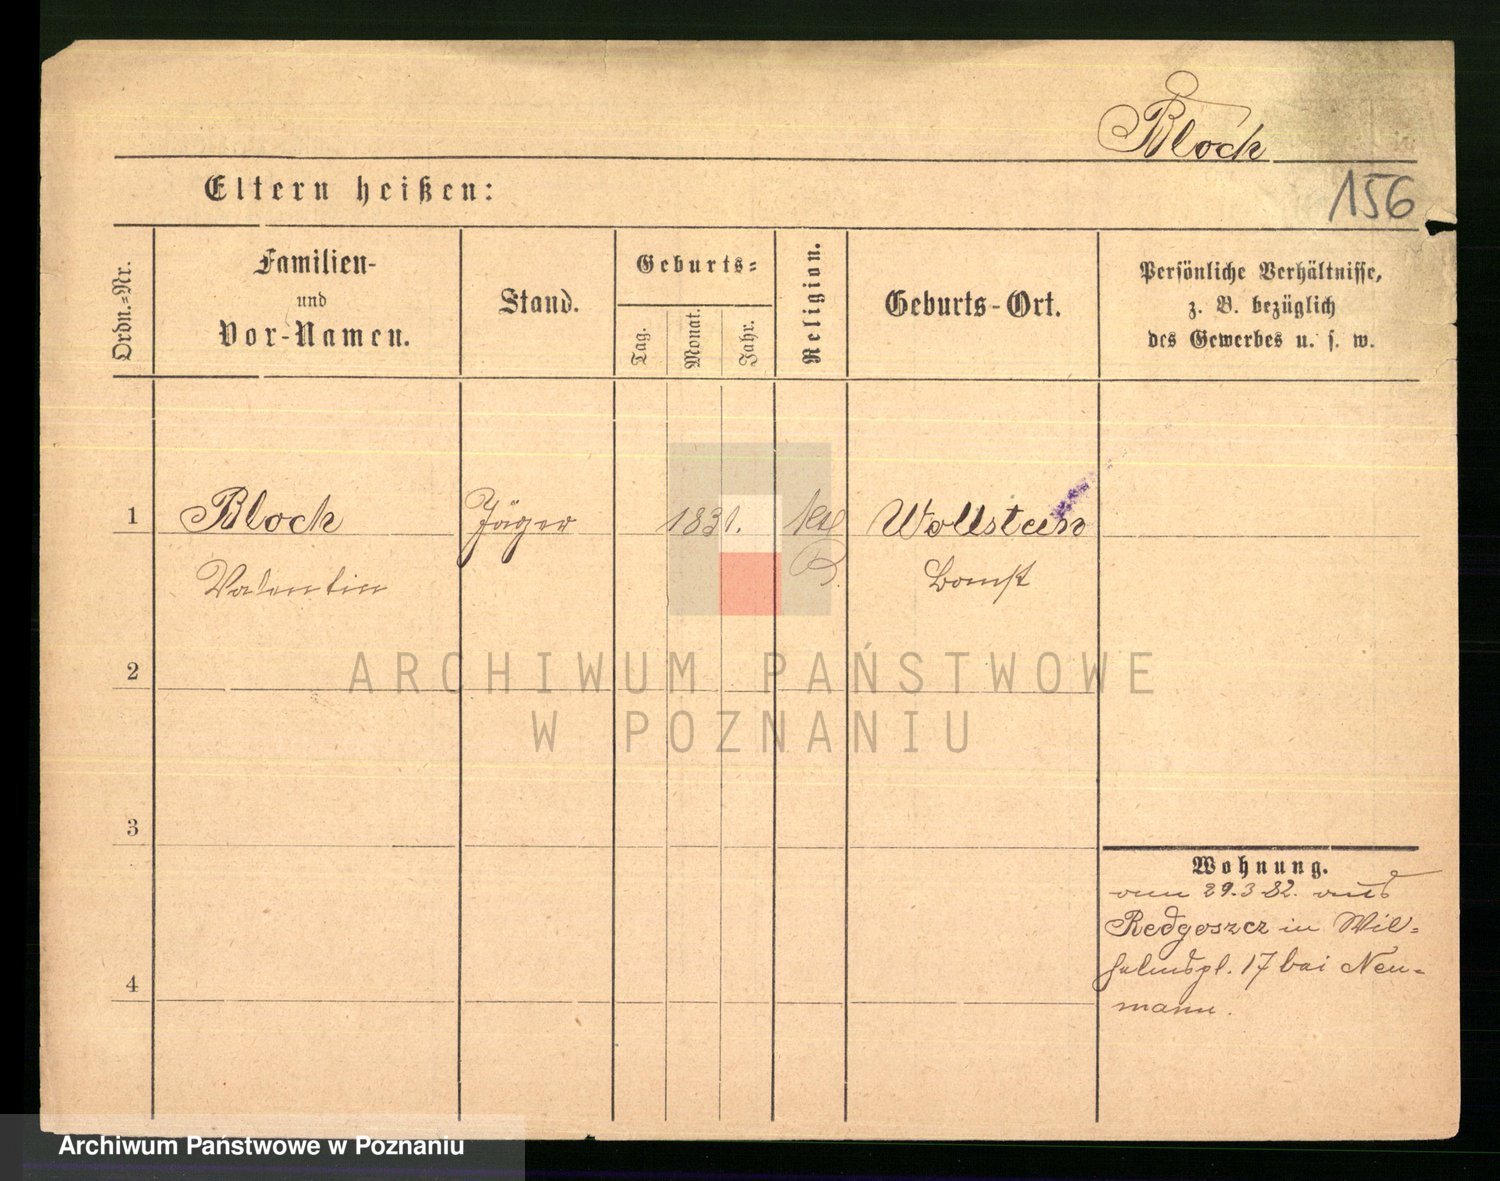 Block
Eltern heißen:
156
Ordn.-Nr.
Familien-
und
Vor-Namen.
Stand.
Geburts-
Tag.
Monat.
Jahr.
Religion.
Geburts-Ort.
Persönliche Verhältnisse,
z. B. bezüglich
des Gewerbes u. s. w.
1
Block
Jäger
1831.
Wollstein
Valentin
Bomst
2
ARCHIWUM PAŃSTWOWE
W POZNANIU
3
Wohnung.
vom 29.3 82. aus
Redgoszcz in Wil-
helmspl. 17 bei Neu-
mann.
4
Archiwum Państwowe w Poznaniu